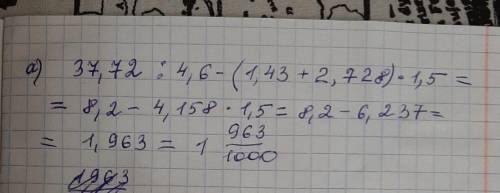 а) 37,72 : 4,6 - (1,43 + 2,728) · 1,5 =
= 8,2 - 4,158 · 1,5 = 8,2 - 6,237 =
= 1,963 = 1 963/1000
1963